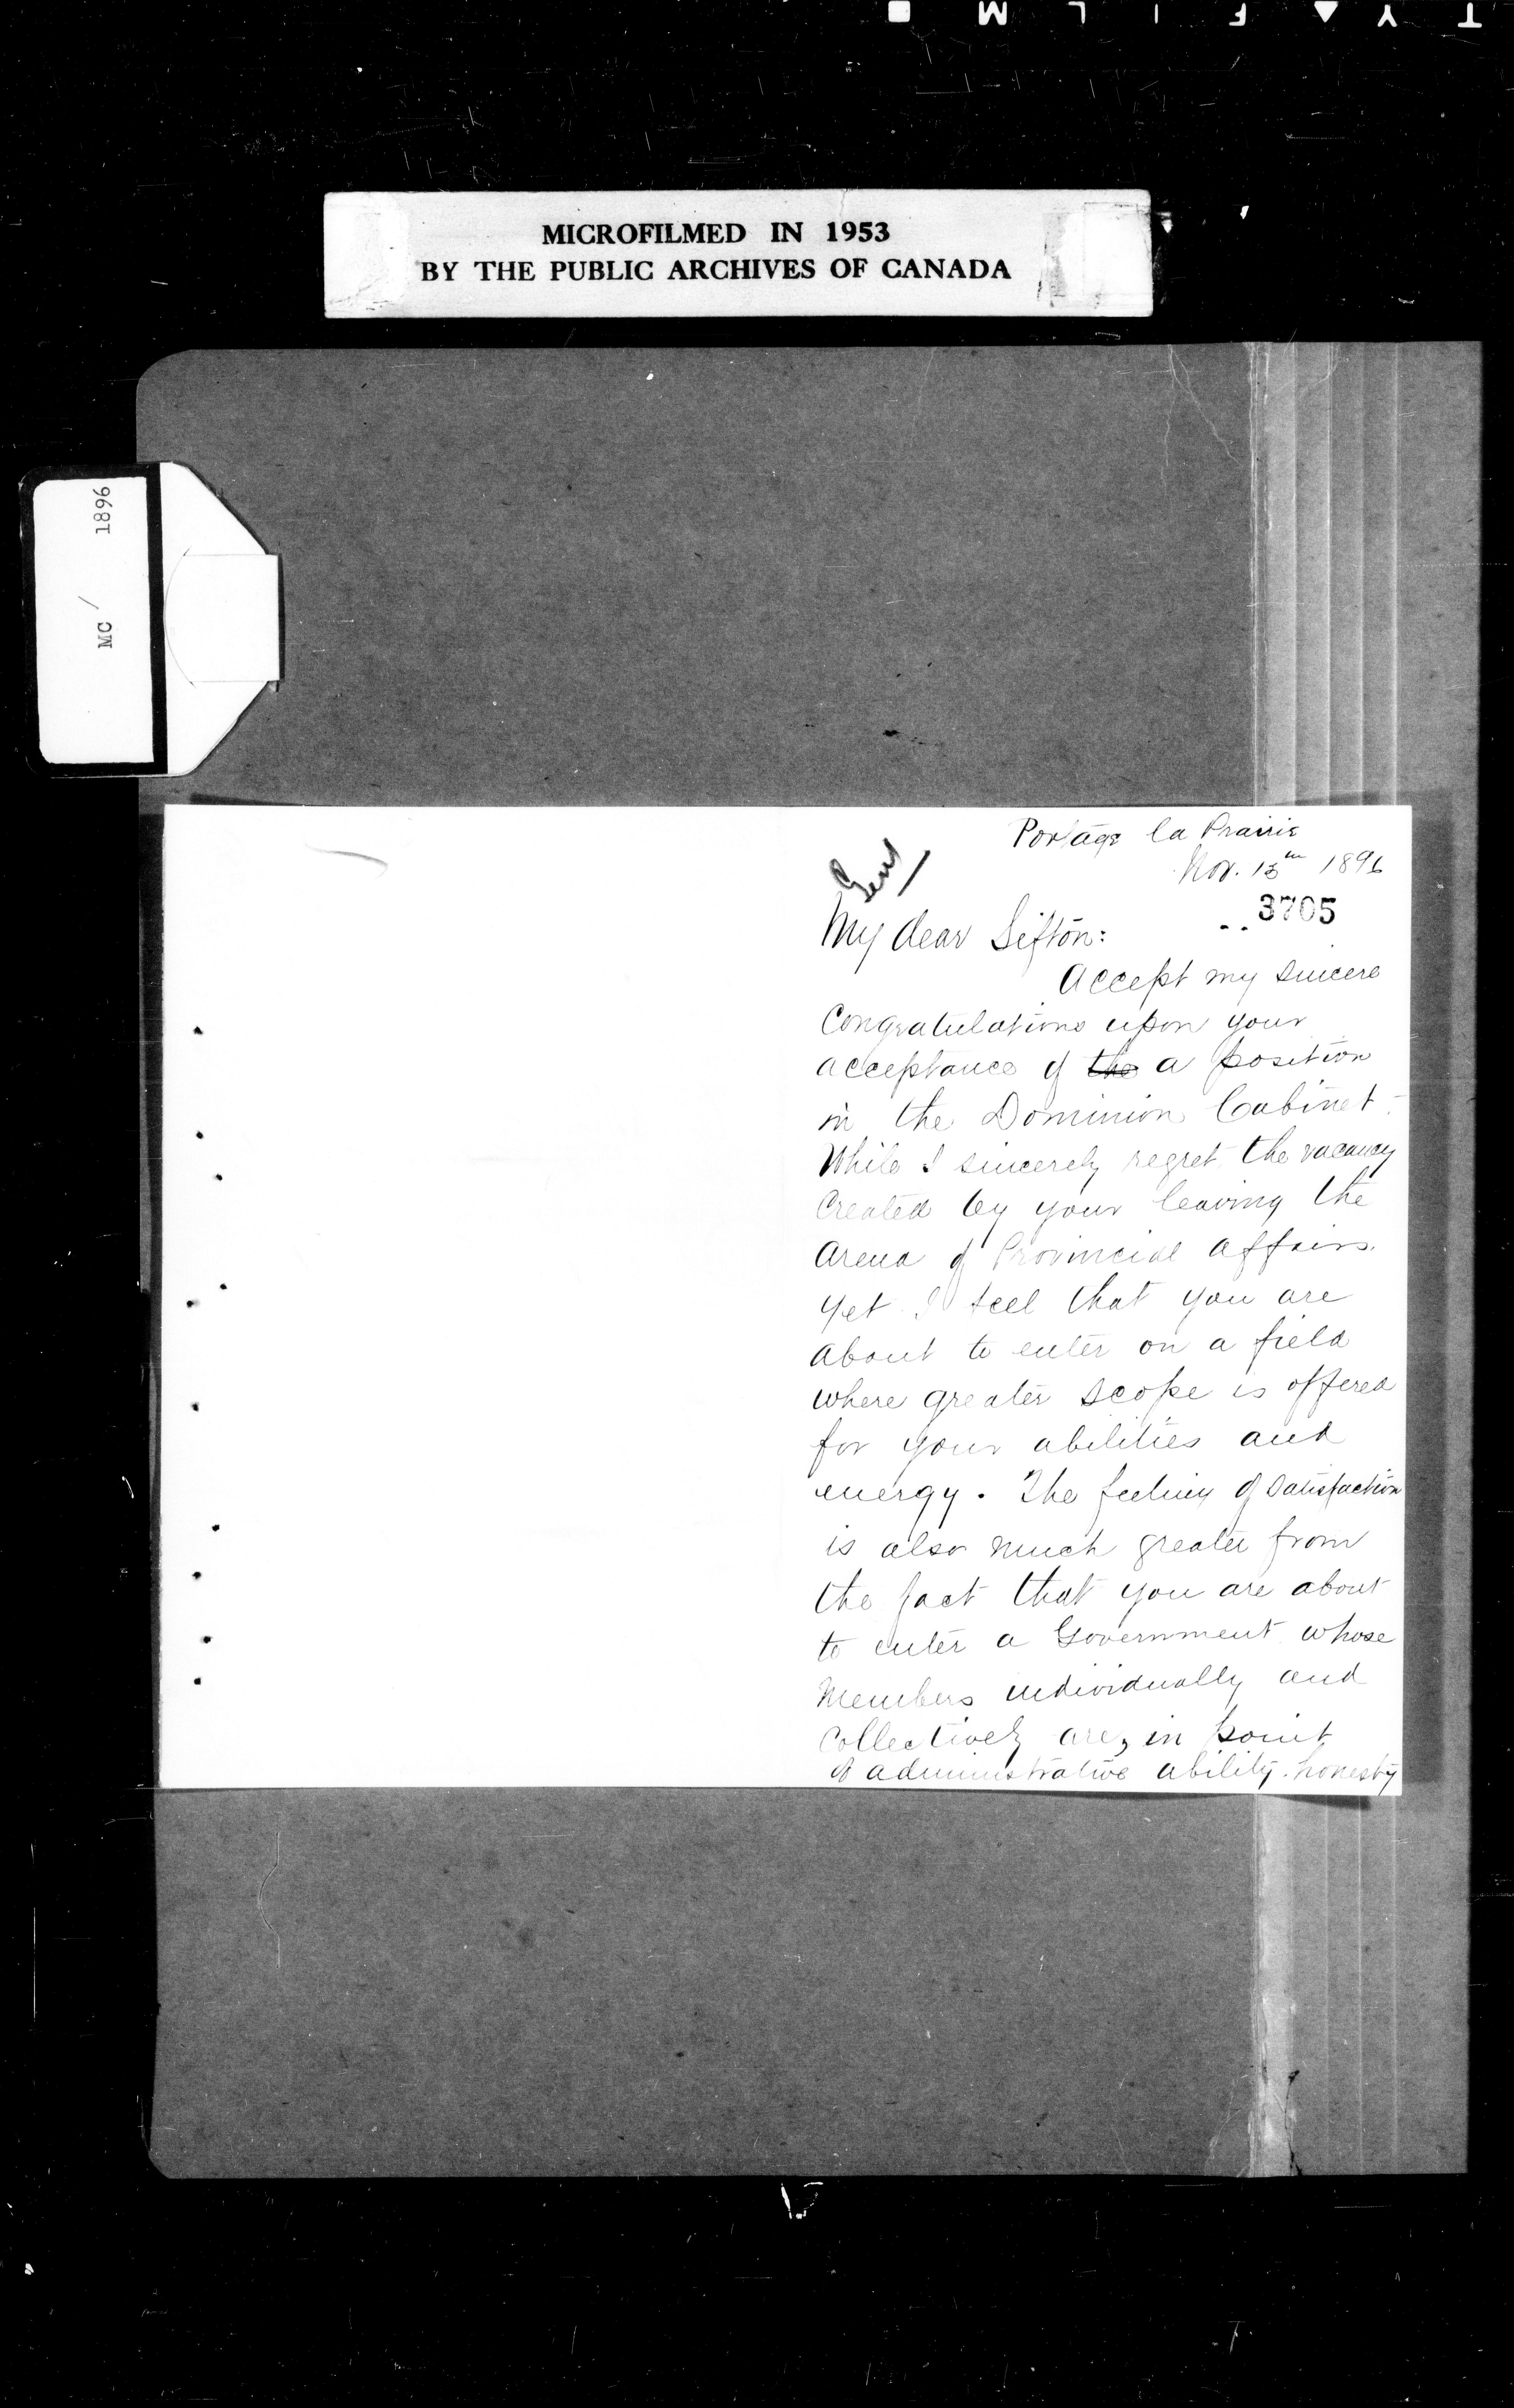 MICROFILMED IN 1953
BY THE PUBLIC ARCHIVES OF CANADA
MC / 1896
Portage la Prairie
Nov. 15th 1896
3705
My dear Sifton:
Accept my sincere
Congratulations upon your
acceptance of the a position
in the Dominion Cabinet.
While I sincerely regret the vacancy
Created by your leaving the
arena of Provincial affairs.
yet I feel that you are
about to enter on a field
where greater scope is offered
for your abilities and
energy. The feeling of satisfaction
is also much greater from
the fact that you are about
to enter a Government whose
Members individually and
Collectively are, in point
of administrative ability. honesty